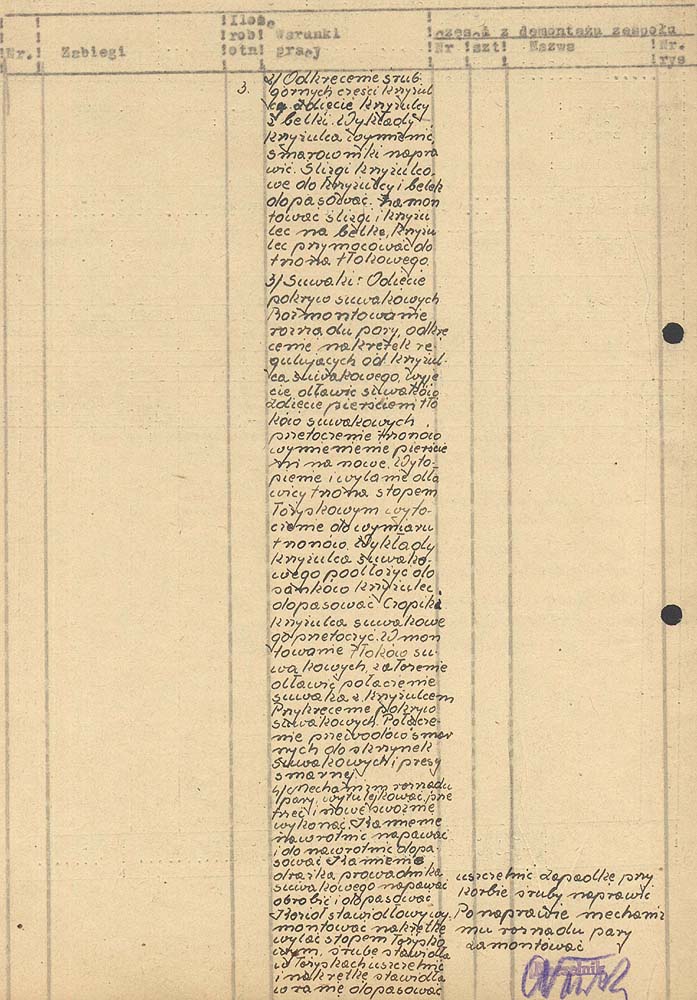 Nr. Zabiegi Ilość robotni Warunki pracy części z demontażu zespołu Nr szt Nazwa Nr. rys
3. 2/ Odkręcenie śrub
górnych części krzyżul
ca, zdjęcie krzyżulcy
z belki. Wykłady
krzyżulca wymienić
smarowniki napra
wić. Ślizgi krzyżulco
we do krzyżulcy i belek
dopasować. Zamon
tować ślizgi i krzyżu
lec na belkę, krzyżu
lec przymocować do
trzona tłokowego.
3/ Suwaki: Odjęcie
pokryw suwakowych
Rozmontowanie
rozrządu pary, odkrę
cenie nakrętek re
gulujących od krzyżul-
ca suwakowego, wyję
cie dławic suwaków
zdjęcie pierścieni tło
ków suwakowych
przetoczenie trzonów
wymienienie pierście
ni na nowe. Wyto-
pienie i wylanie dła
wicy trzona stopem
łożyskowym wyto-
czenie do wymiaru
trzonów. Wykłady
krzyżulca suwako-
wego podłożyć do
zamków krzyżulec
dopasować. Czopika
krzyżulca suwakowe
go przetoczyć. Wmon
towanie tłoków su-
wakowych, założenie
dławic połączenie
suwaka z krzyżulcem
Przykręcenie pokryw
suwakowych. Połącze-
nie przewodów smar
nych do skrzynek
suwakowych i prasy
smarnej.
4/ Mechanizm rozrządu
pary, wytulejkować, prze
trzeć i nowe sworznie
wykonać. Kamienie
nawrotnic napawać
i do nawrotnic dopa-
sować. Kamienie
drążka prowadnika
suwakowego napawać
obrobić i dopasować.
Kozioł stawidłowy wy-
montować nakrętkę
wylać stopem łożysko
wym, śrubę stawidła
w łożyskach uszczelnić
i nakrętkę stawidła
w ramie dopasować
uszczelnić zapadkę przy
korbie śruby naprawić
Po naprawie mechani
zmu rozrządu pary
zamontować